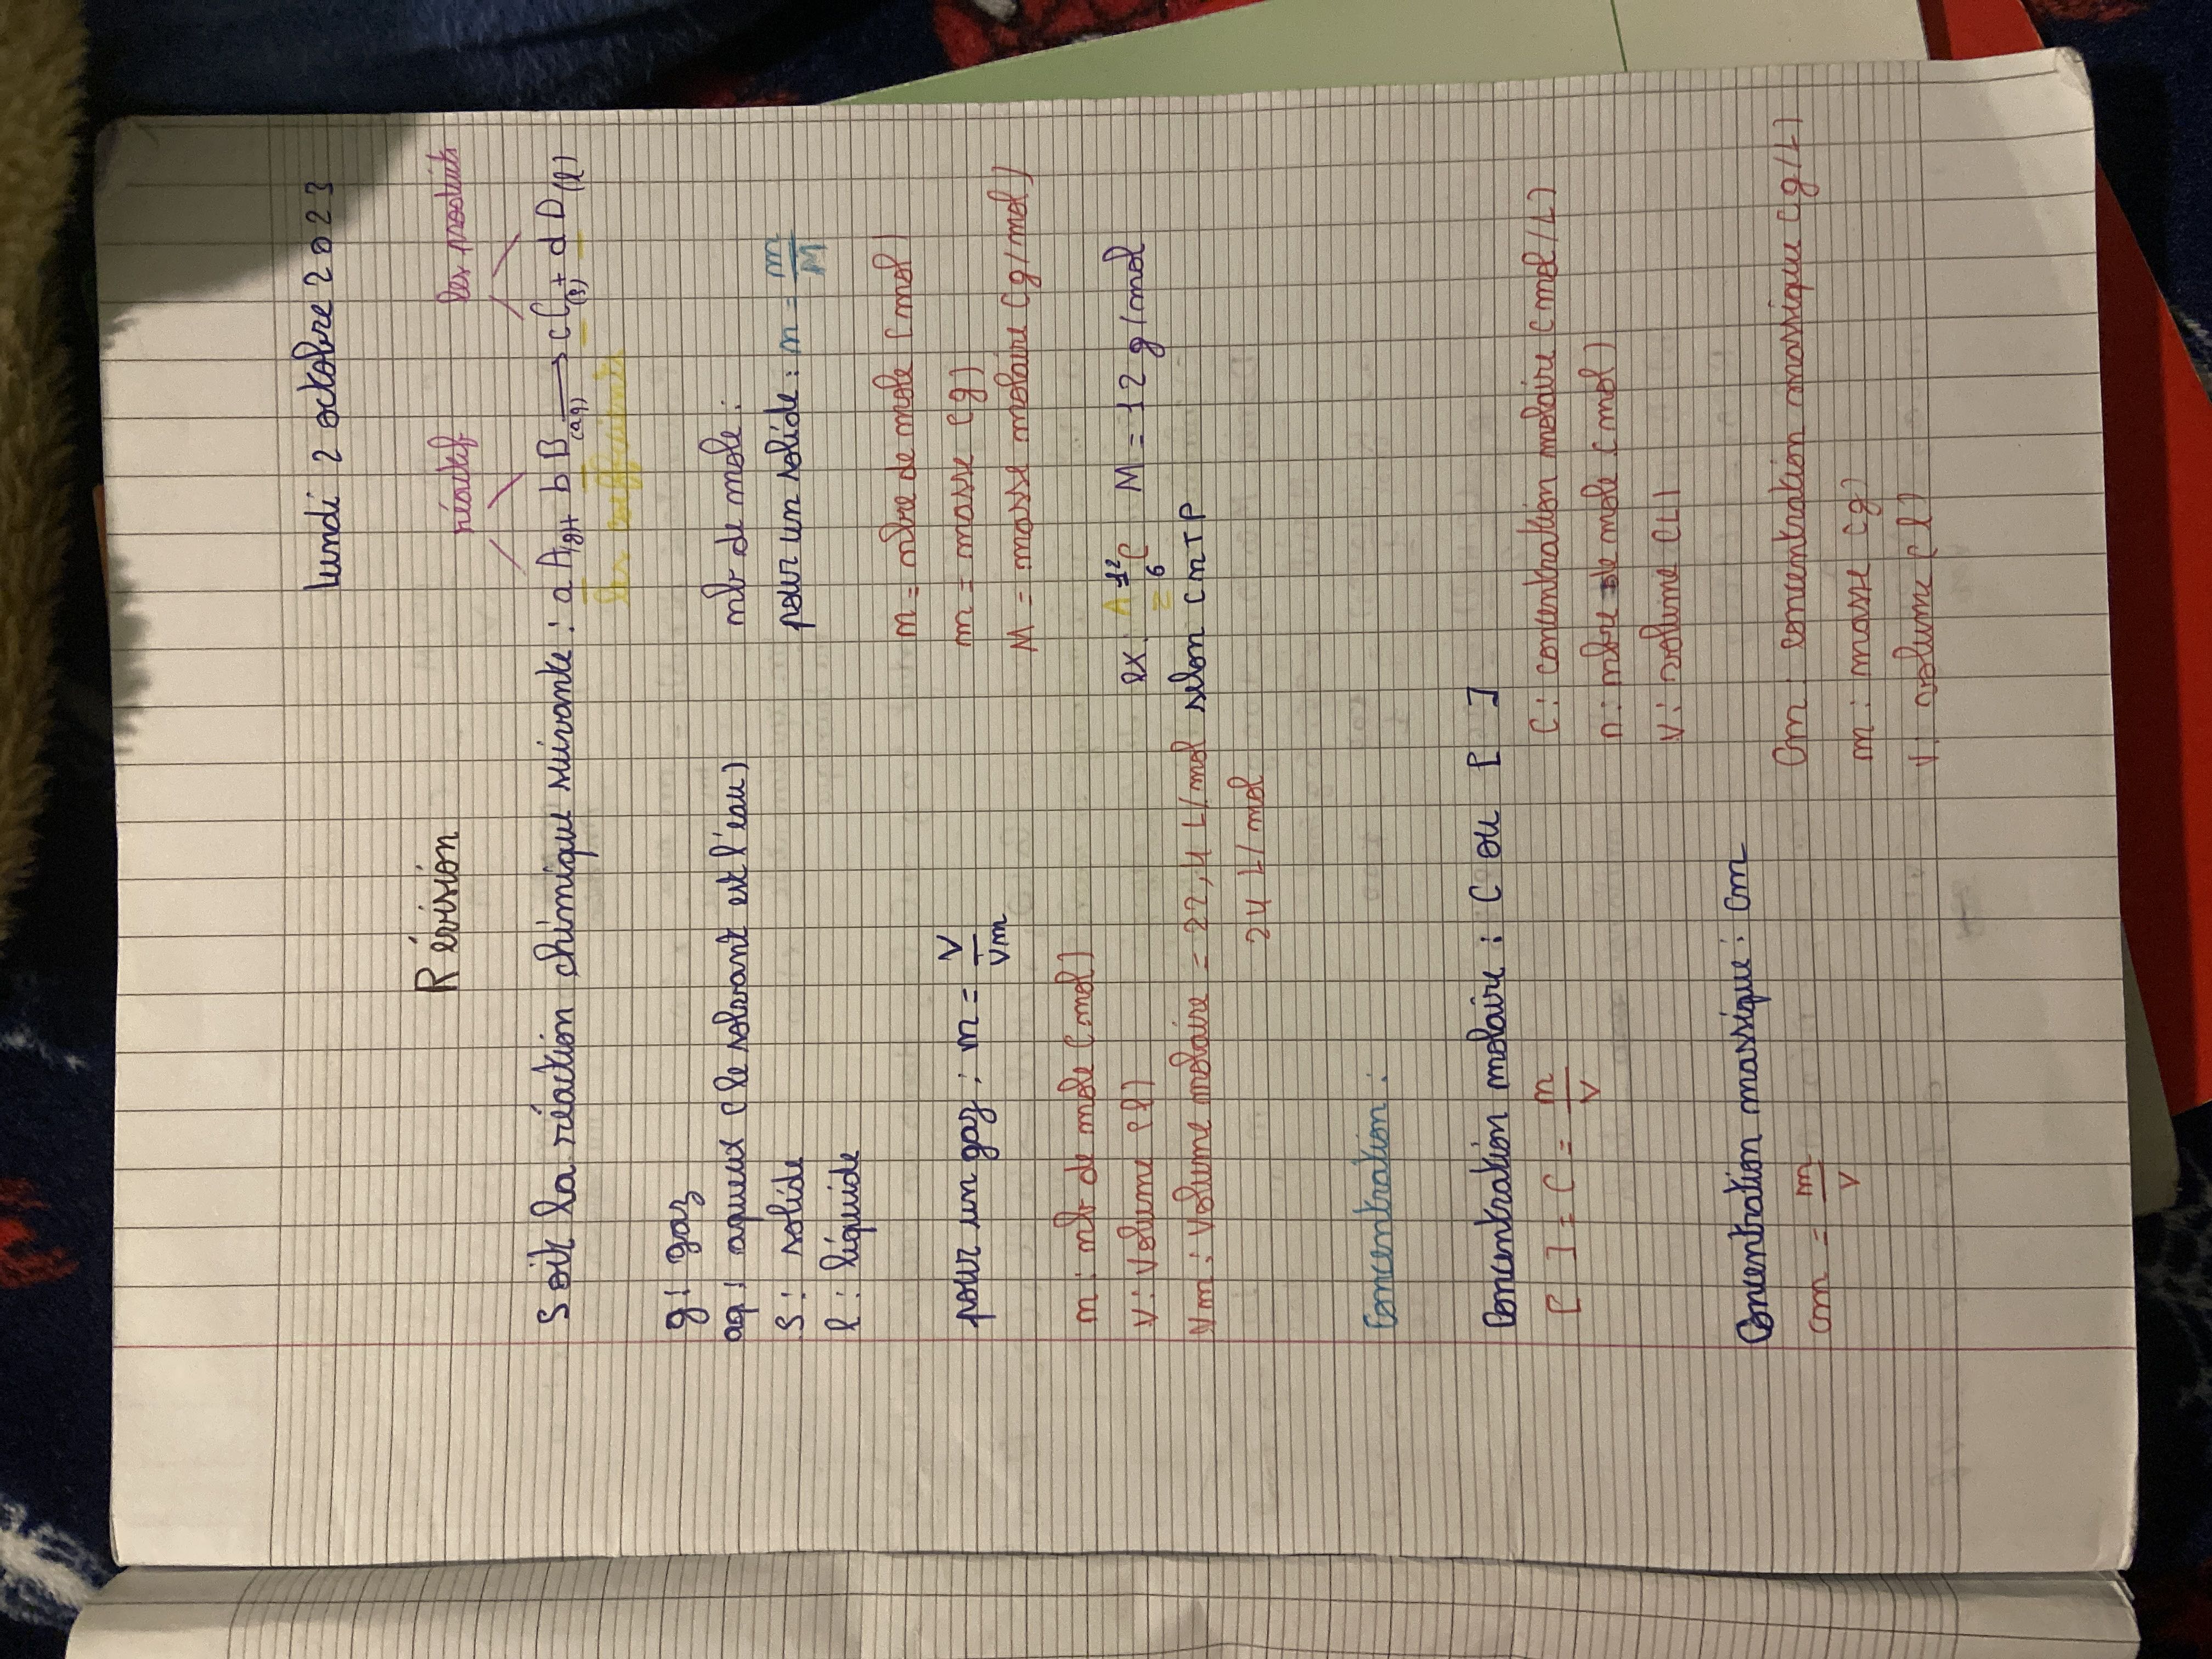 lundi 2 octobre 2023
Révision
réactif les produits
Soit la réaction chimique suivante : a A(g) + b B(aq) → c C(s) + d D(l)
les coefficients
g : gaz
aq : aqueux (le solvant est l'eau)
nb de mole :
s : solide
pour un solide : n = m/M
l : liquide
n = nbre de mole (mol)
pour un gaz : n = V/Vm
m = masse (g)
M = masse molaire (g/mol)
n : nb de mole (mol)
ex : A 12 C M = 12 g/mol
Z 6
V : Volume (l)
Vm : Volume molaire = 22,4 L/mol selon CNTP
24 L/mol
Concentration :
Concentration molaire : C ou [ ]
[ ] = C = n/V
C : concentration molaire (mol/L)
n : nbre de mole (mol)
V : volume (L)
Concentration massique : Cm
Cm = m/V
Cm : concentration massique (g/L)
m : masse (g)
V : volume (l)